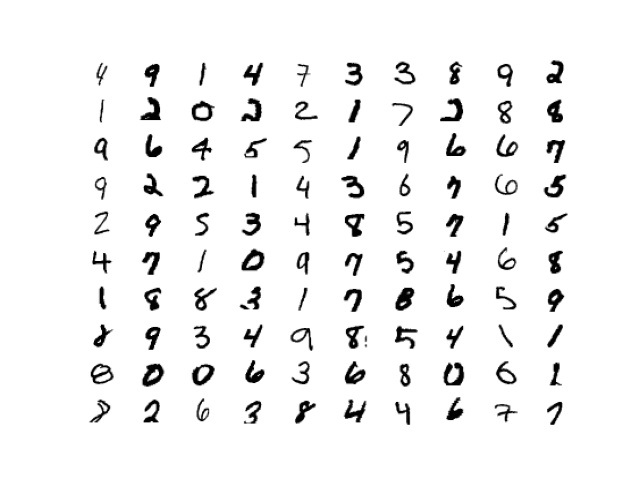 4 9 1 4 7 3 3 8 9 2
1 2 0 2 2 1 7 2 8 8
9 6 4 5 5 1 9 6 6 7
9 2 2 1 4 3 6 7 6 5
2 9 5 3 4 8 5 7 1 5
4 7 1 0 9 7 5 4 6 8
1 8 8 3 1 7 8 6 5 9
8 9 3 4 9 8 5 4 1 1
8 0 0 6 3 6 8 0 6 1
8 2 6 3 8 4 4 6 7 7